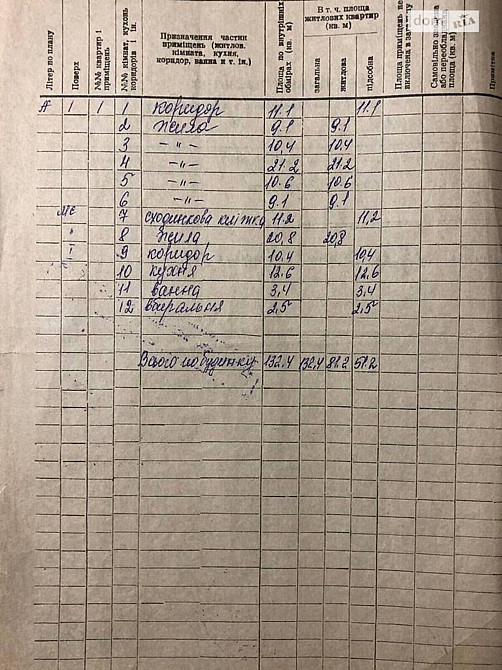 Літер по плану
Поверх
№№ квартир і приміщень
№№ кімнат, кухонь коридорів і ін.
Призначення частин
приміщень (житлов.
кімната, кухня,
коридор, ванна и т. ін.)
Площа по внутрішніх обмірах (кв. м)
В т. ч. площа
житлових квартир
(кв. м)
загальна
житлова
підсобна
Площа приміщень не включена в загальну
Самовільно або переоблад площа (кв. м)
Примітки
dom RIA
А 1 1 1 коридор 11.1 11.1
2 жила 9.1 9.1
3 — „ — 10,4 10.4
4 — „ — 21.2 21.2
5 — „ — 10.6 10.6
6 — „ — 9.1 9.1
7 сходинкова клітка 11.2 11,2
" 8 жила 20,8 20,8
9 коридор 10.4 10,4
10 кухня 12.6 12,6
11 ванна 3,4 3,4
12 вбиральня 2,5 2,5
Всього по будинку 132.4 132,4 81.2 51.2